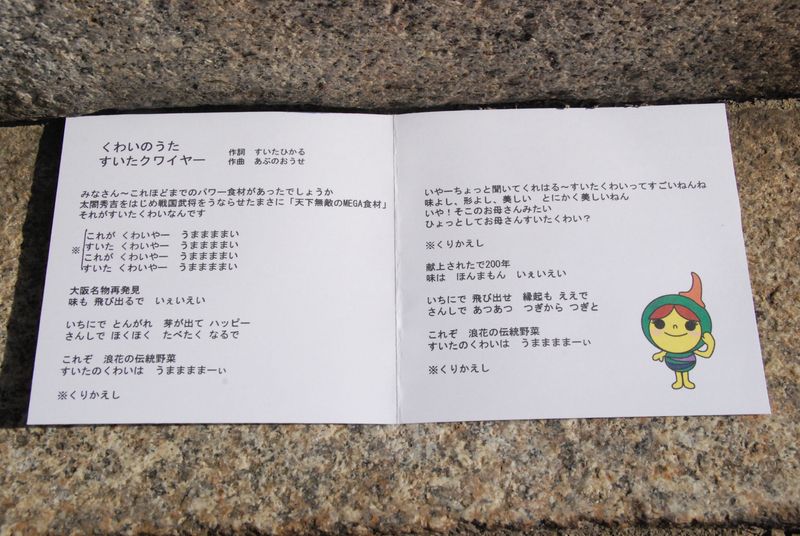 くわいのうた
すいたクワイヤー
作詞 すいたひかる
作曲 あぶのおうせ
みなさん～これほどまでのパワー食材があったでしょうか
太閤秀吉をはじめ戦国武将をうならせたまさに「天下無敵のMEGA食材」
それがすいたくわいなんです
これが くわいやー うまままい
すいた くわいやー うまままい
※
これが くわいやー うまままい
すいた くわいやー うまままい
大阪名物再発見
味も 飛び出るで いぇいえい
いちにで とんがれ 芽が出て ハッピー
さんしで ほくほく たべたく なるで
これぞ 浪花の伝統野菜
すいたのくわいは うままままーぃ
※くりかえし
いやーちょっと聞いてくれはる～すいたくわいってすごいねんね
味よし、形よし、美しい とにかく美しいねん
いや！そこのお母さんみたい
ひょっとしてお母さんすいたくわい？
※くりかえし
献上されたで200年
味は ほんまもん いぇいえい
いちにで 飛び出せ 縁起も ええで
さんしで あつあつ つぎから つぎと
これぞ 浪花の伝統野菜
すいたのくわいは うままままーぃ
※くりかえし